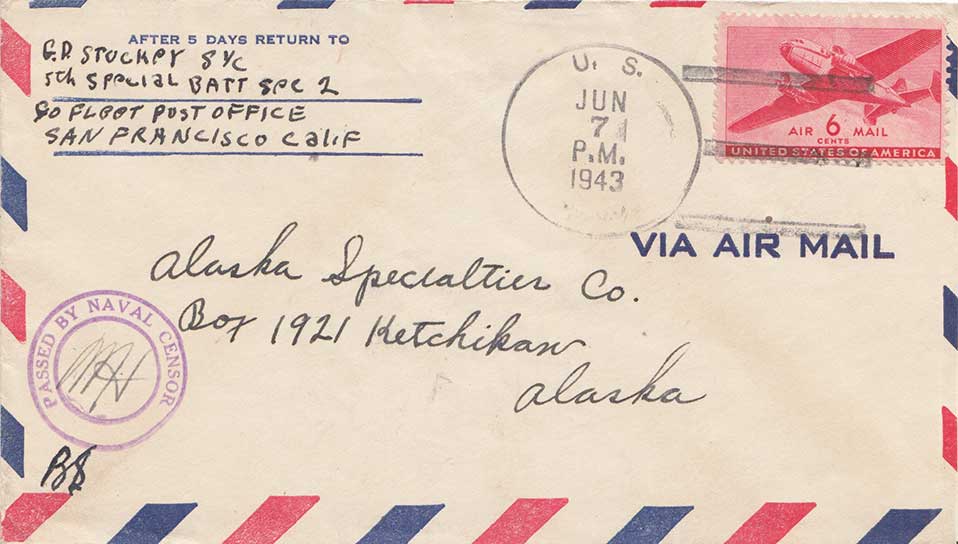 AFTER 5 DAYS RETURN TO
G.D. STUCHPY S 1/C
5th SPECIAL BATT SEC 2
c/o FLEET POST OFFICE
SAN FRANCISCO CALIF
U. S.
JUN
7
P.M.
1943
AIR 6 MAIL
CENTS
UNITED STATES OF AMERICA
VIA AIR MAIL
Alaska Specialties Co.
Box 1921 Ketchikan
Alaska
PASSED BY NAVAL CENSOR